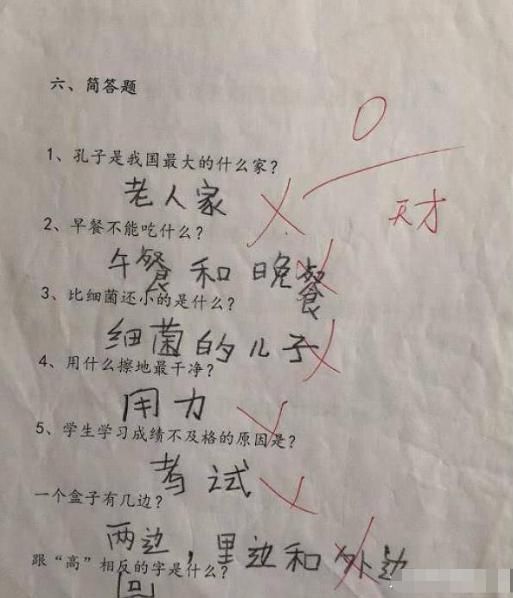 六、简答题
0
1、孔子是我国最大的什么家?
老人家
天才
2、早餐不能吃什么?
午餐 和 晚餐
3、比细菌还小的是什么?
细菌的儿子
4、用什么擦地最干净?
用力
5、学生学习成绩不及格的原因是?
考试
一个盒子有几边?
两边，里边和外边
跟“高”相反的字是什么?